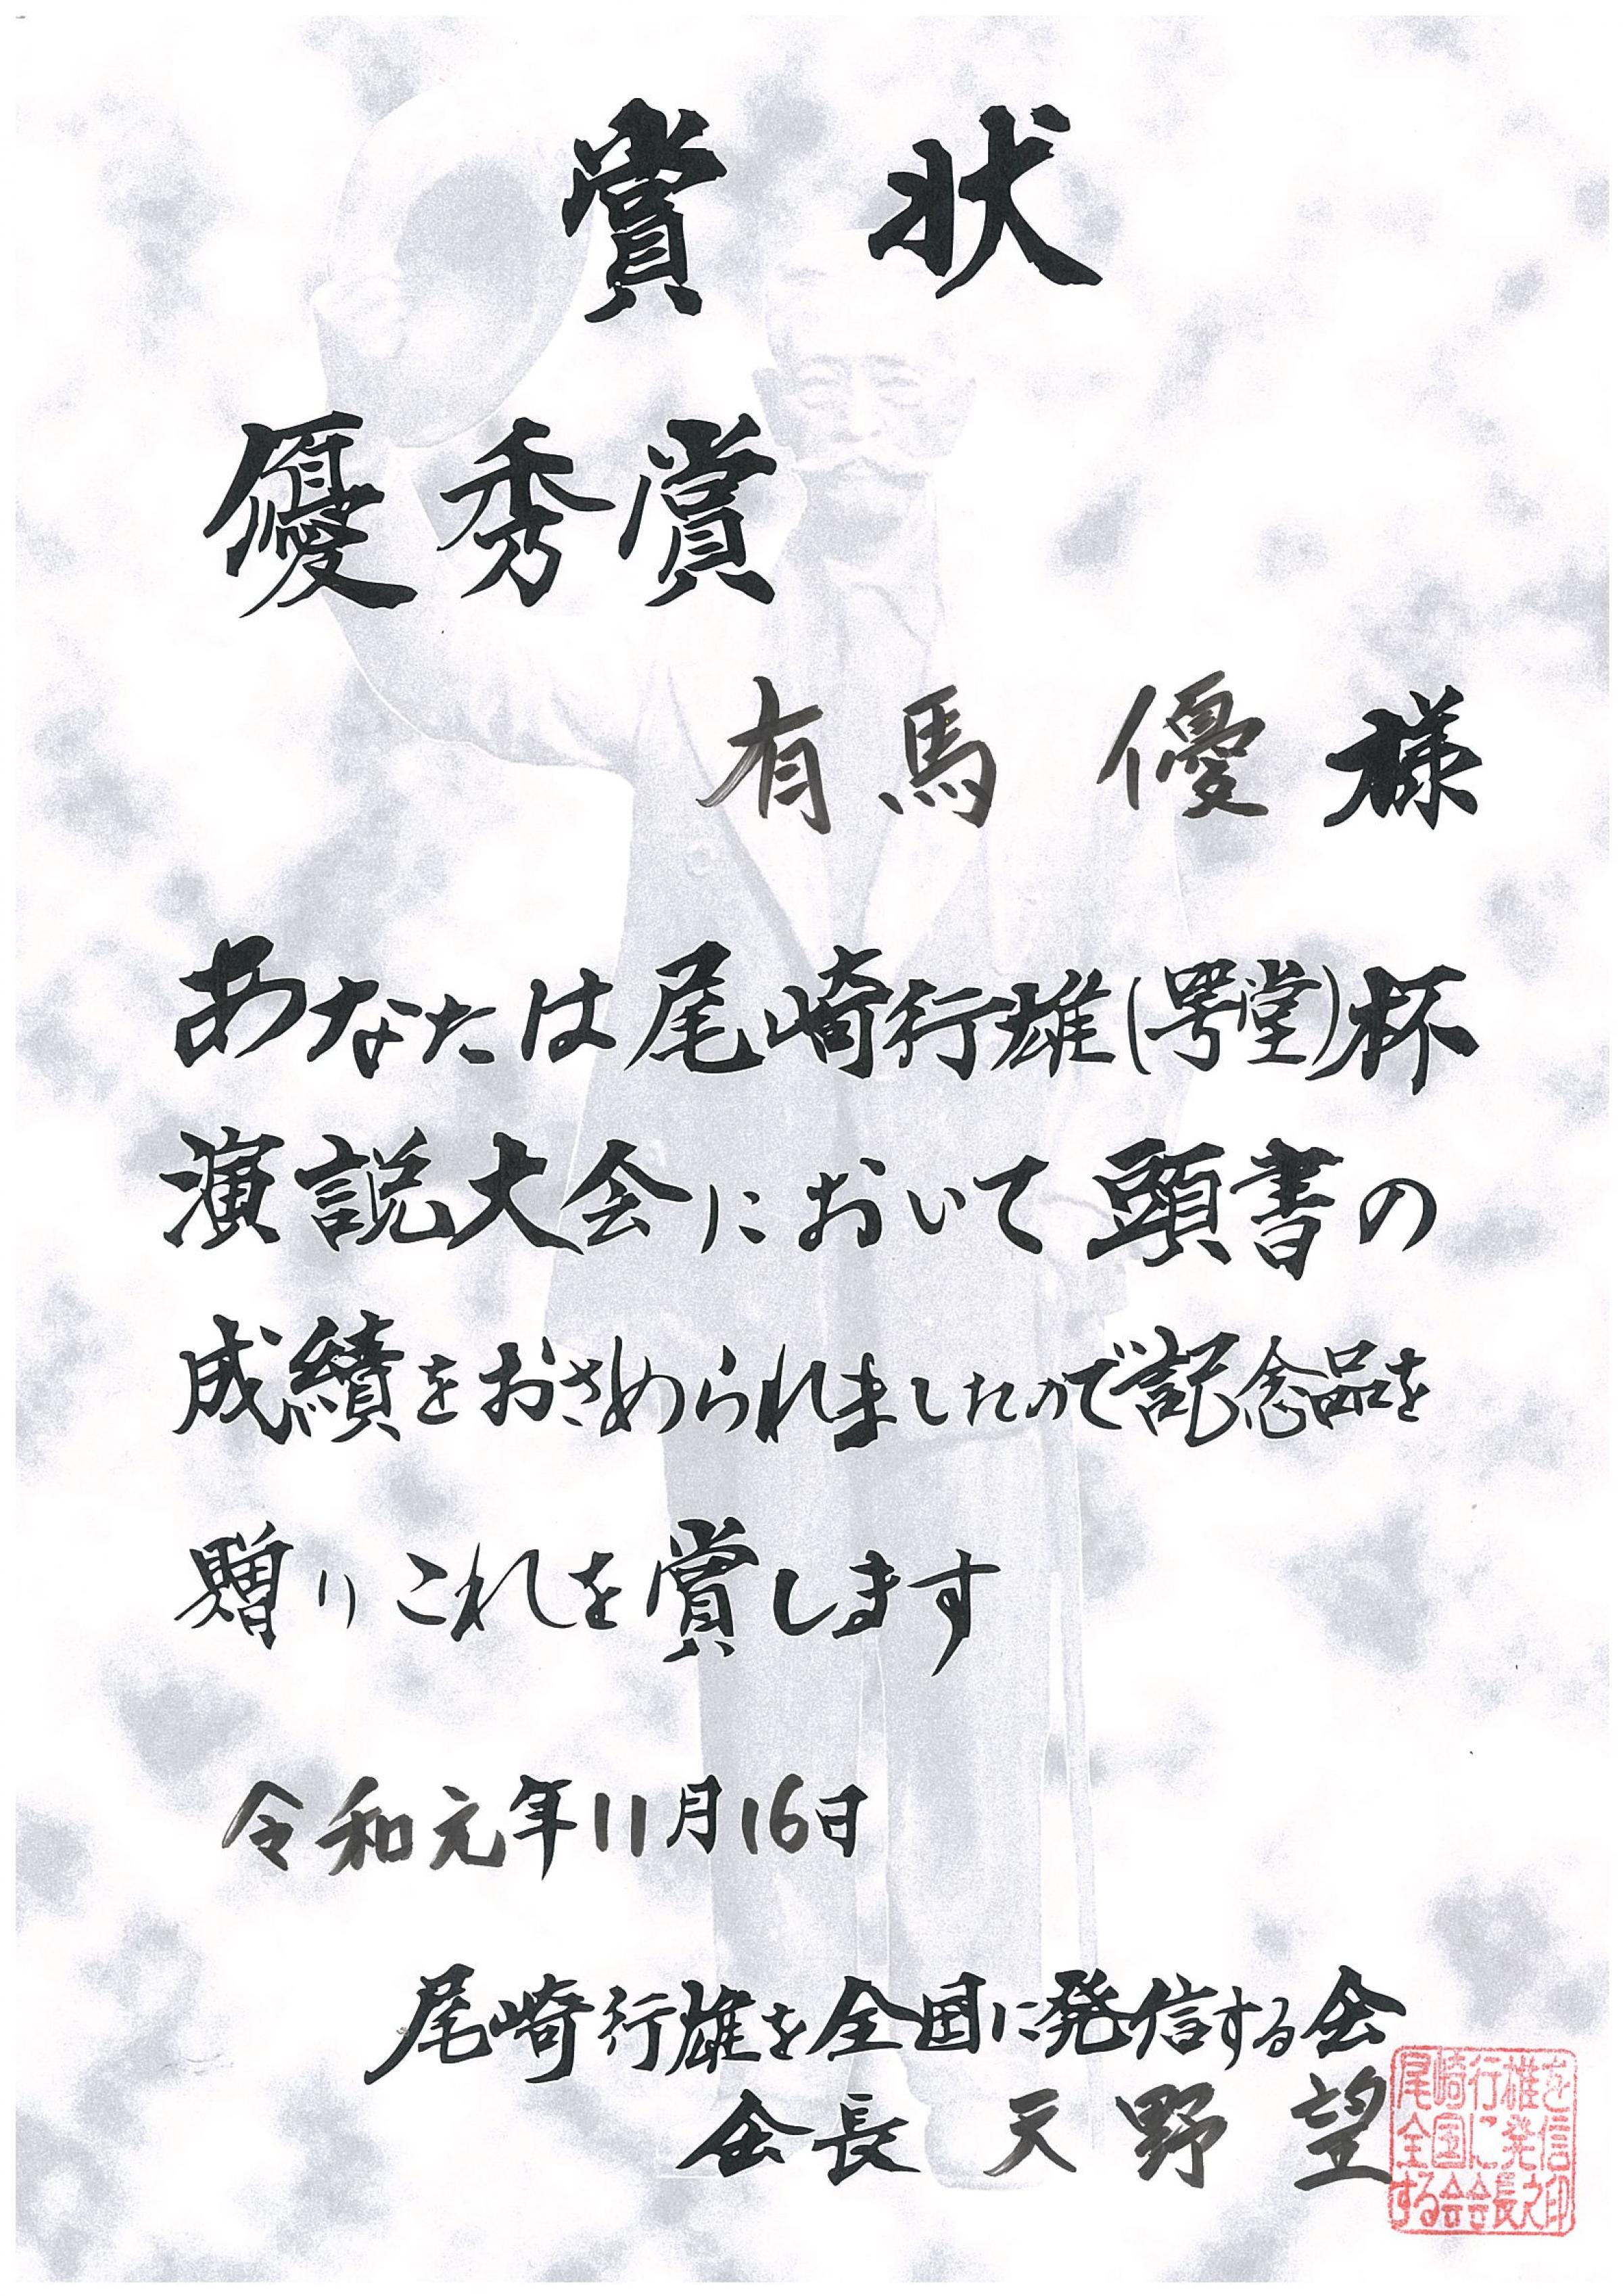 賞状
優秀賞
有馬 優 様
あなたは尾崎行雄(咢堂)杯
演説大会において頭書の
成績をおさめられましたので記念品を
贈りこれを賞します
令和元年11月16日
尾崎行雄を全国に発信する会
会長 天野 望
尾崎行雄を
全国に発信
する会会長之印